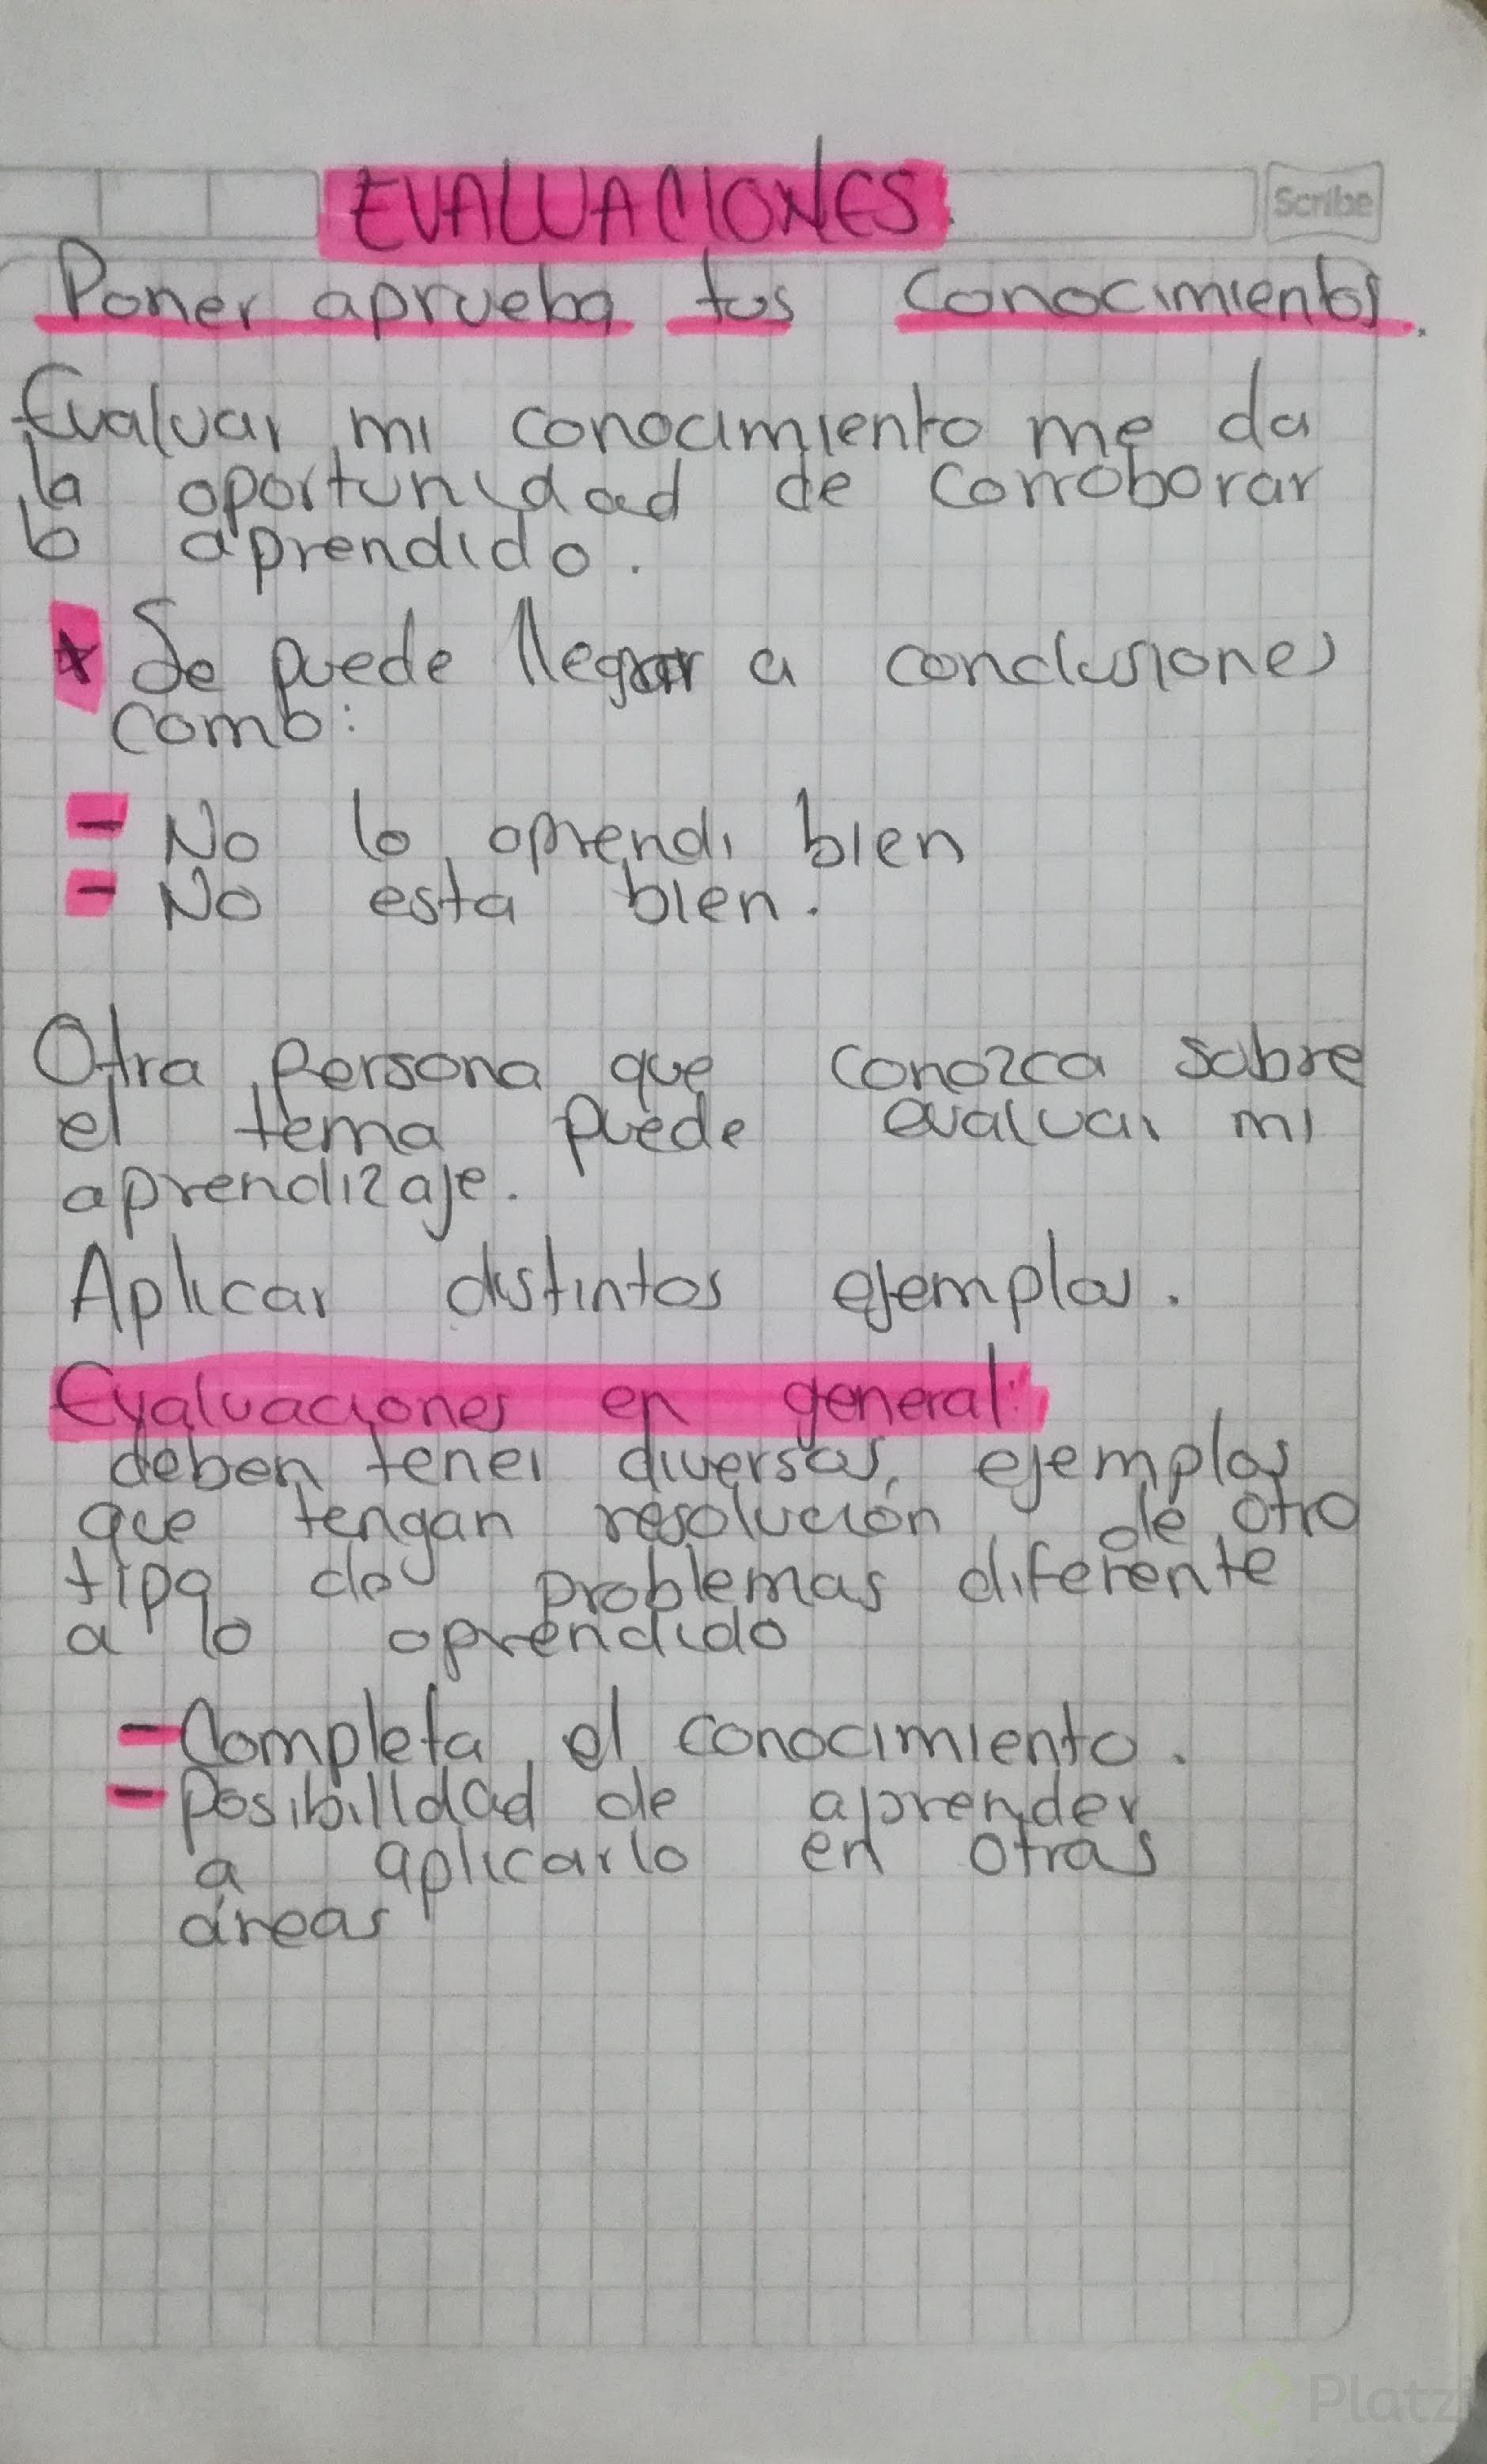 EVALUACIONES.
Scribe
Poner aprueba tus conocimientos.
Evaluar mi conocimiento me da
la oportunidad de corroborar
lo aprendido.
* Se puede llegar a conclusiones
como:
- No lo aprendi bien
- No esta bien.
Otra persona que conozca sobre
el tema puede evaluar mi
aprendizaje.
Aplicar distintos ejemplos.
Evaluaciones en general:
deben tener diversos ejemplos
que tengan resolución de otro
tipo de problemas diferente
a lo aprendido
- Completa el conocimiento.
- Posibilidad de aprender
a aplicarlo en otras
áreas
Platzi